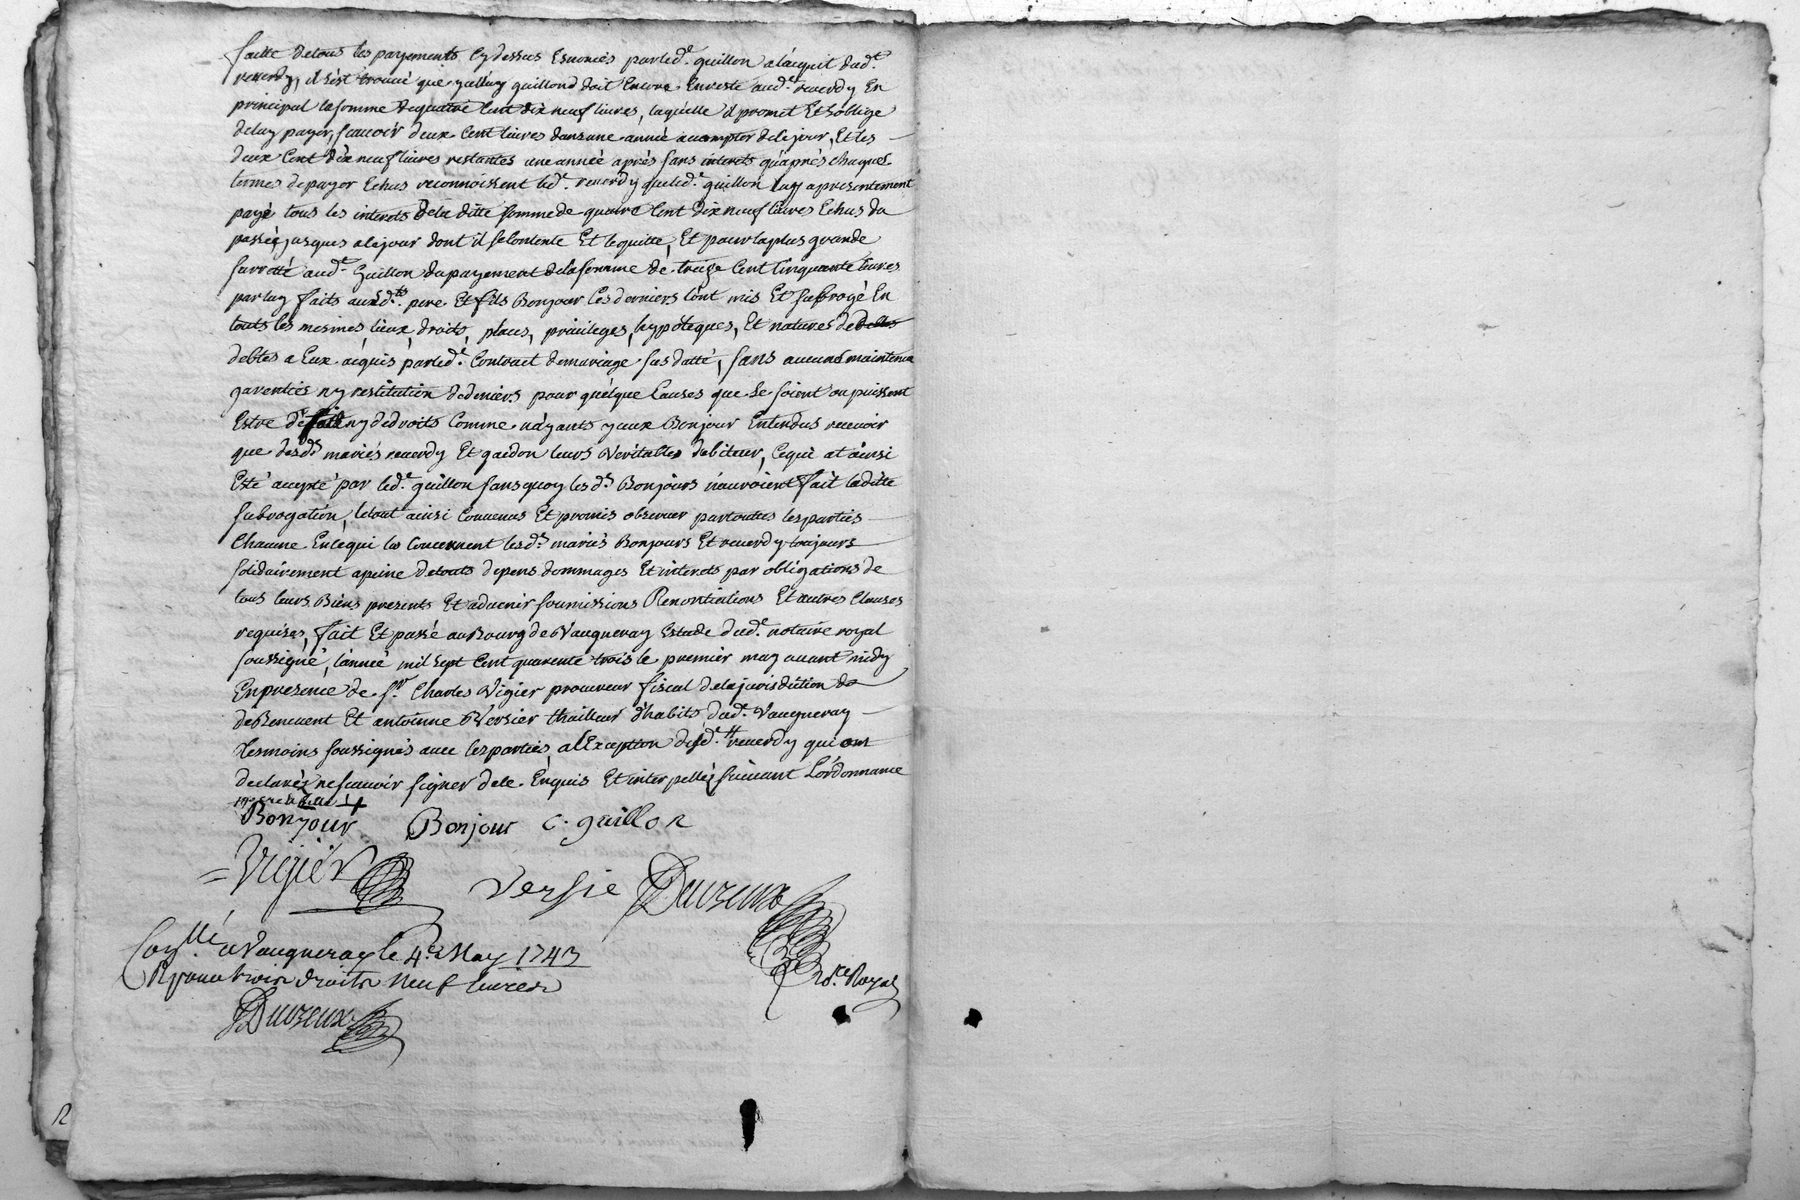 faitte detous les payements cy dessus Enoncés par led.t guillon alacquit dud.t
reverdy, il s'est trouvé que yceluy guillon doit Encore Enreste aud.t reverdy En
principal lasomme dequatre Cent dix neuf livres, laquelle il promet Et soblige
deluy payer, scavoir deux Cent livres dans une année acompter dece jour, Et les
deux Cent dix neuf livres restantes une année après sans interets qu'après chaques
termes depayer Echus reconnoissent led.t reverdy queled.t guillon luy apresentement
payé tous les interets dela ditte somme de quatre Cent dix neuf livres Echus du
passé jusques acejour dont il seContente Et lequitte, Et pour la plus grande
surretté aud.t Guillon dupayement delasomme de treize Cent Cinquante livres
par luy faits auxd.ts pere Et fils Bonjour Ces derniers l'ont mis Et subrogé En
touts les mesmes lieux, droits, places, privileges, hypoteques, Et natures de
debtes a Eux acquis par led.t Contract demariage sus datté, sans aucune maintenue
garenties ny restitution dedeniers pour quelque Causes que Ce soient ou puissent
Estre de fait ny dedroits Comme n'ayants yceux Bonjour Entendus recevoir
que desd.ts mariés reverdy Et guidon leurs véritables debiteur, Cequi at ainsi
Esté accepté par led.t guillon sans quoy les d.ts Bonjours n'auroient fait laditte
subrogation, letout ainsi Convenus Et promis observer par toutes les parties
Chacune Encequi les Concernent lesd.ts mariés Bonjours Et reverdy toujours
solidairement apeine detouts depens dommages Et interets par obligations de
tous leurs Biens presents Et advenir soumissions Renontiations Et autres Clauses
requises, fait Et passé auBourg de Vaugneray Estude dud.t notaire royal
soussigné, lannée mil sept Cent quarente trois le premier may avant midy
Enpresence de s.r Charles Vigier procureur fiscal delajurisdiction de
deBenevent Et antoinne Versier thailleur d'habits dud.t Vaugneray
tesmoins soussignés avec lesparties, alException desd.ts reverdy qui ont
declarés nescavoir signer dece Enquis Et interpellés suivant L'ordonnance
Bonjour Bonjour C. guillon
Vigier Versie Duvreux
Con.llé a Vaugneray le 4.e May 1743
R pour trois droits neuf livres
n.re Royal
Duvreux
12